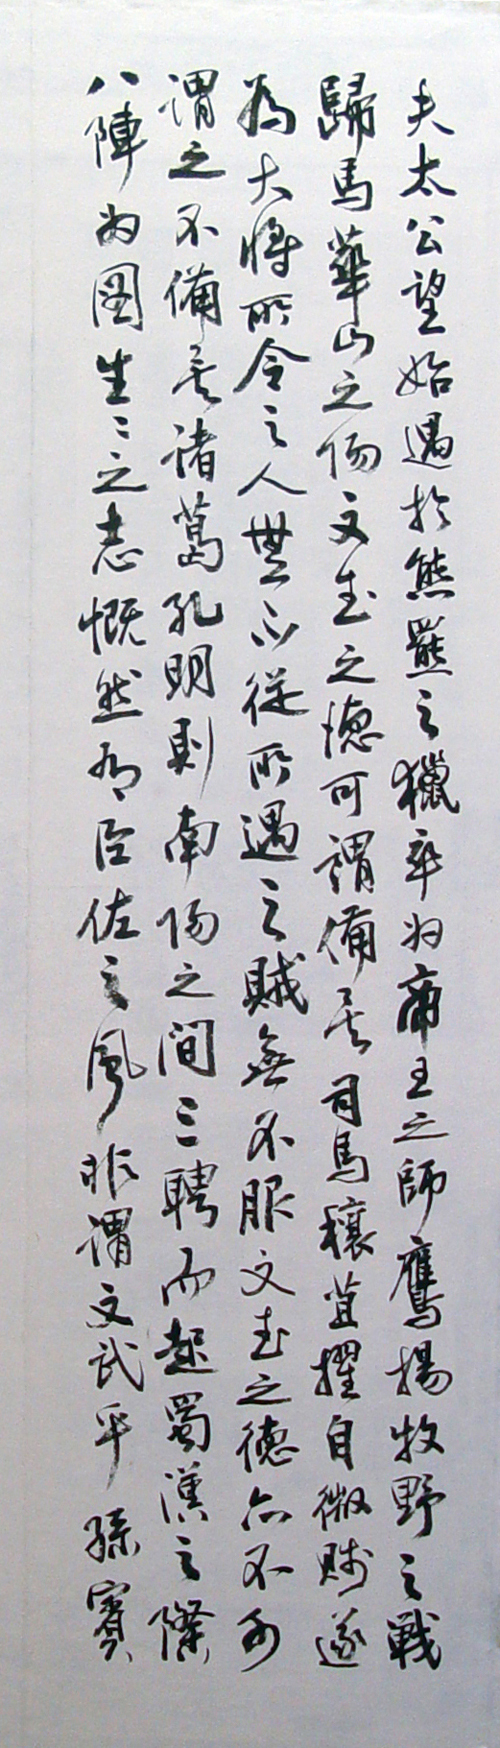 夫太公望始遇於熊羆之獵卒为帝王之師鷹揚牧野之戦
歸馬華山之陽文武之徳可謂備矣司馬穰苴擢自微賤遂
為大將所令之人無不従所遇之賊無不服文武之德亦不可
謂之不備矣諸葛孔明則南陽之間三聘而起蜀漢之際
八陣为图生々之志慨然有臣佐之風非謂文武乎孫賓